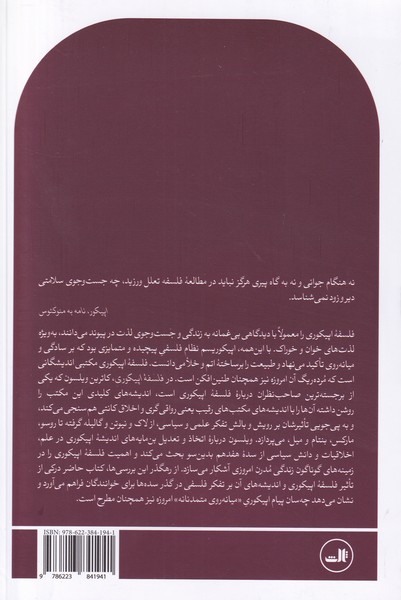 نه هنگام جوانی و نه به گاه پیری هرگز نباید در مطالعهٔ فلسفه تعلل ورزید، چه جست‌وجوی سلامتی
دیر و زود نمی‌شناسد.
اپیکور، نامه به منوکئوس
فلسفهٔ اپیکوری را معمولاً با دیدگاهی بی‌غمانه به زندگی و جست‌وجوی لذت در پیوند می‌دانند، به‌ویژه
لذت‌های خوان و خوراک. با این‌همه، اپیکوریسم نظام فلسفی پیچیده و متمایزی بود که بر سادگی و
میانه‌روی تأکید می‌نهاد و طبیعت را برساختهٔ اتم و خلأ می‌دانست. فلسفهٔ اپیکوری مکتبی اندیشگانی
است که خُرده‌ریگ آن امروزه نیز همچنان طنین‌افکن است. در فلسفهٔ اپیکوری، کاترین ویلسون که یکی
از برجسته‌ترین صاحب‌نظران دربارهٔ فلسفهٔ اپیکوری است، اندیشه‌های کلیدی این مکتب را
روشن داشته آن‌ها را با اندیشه‌های مکتب‌های رقیب یعنی رواقی‌گری و اخلاق کانتی هم‌سنجی می‌کند،
و به پی‌جویی تأثیرشان بر رویش و بالش تفکر علمی و سیاسی، از لاک و نیوتن و گالیله گرفته تا روسو،
مارکس، بنتام و میل، می‌پردازد. ویلسون دربارهٔ اتخاذ و تعدیل بن‌مایه‌های اندیشهٔ اپیکوری در علم،
اخلاقیات و دانش سیاسی از سدهٔ هفدهم بدین‌سو بحث می‌کند و اهمیت فلسفهٔ اپیکوری را در
زمینه‌های گوناگون زندگی مُدرن امروزی آشکار می‌سازد. از رهگذر این بررسی‌ها، کتاب حاضر درکی از
تأثیر فلسفهٔ اپیکوری و اندیشه‌های آن بر تفکر فلسفی در گذر سده‌ها برای خوانندگان فراهم می‌آورد و
نشان می‌دهد چه‌سان پیام اپیکوریِ «میانه‌روی متمدنانه» امروزه نیز همچنان مطرح است.
ISBN: 978-622-384-194-1
9 786223 841941
ثالث